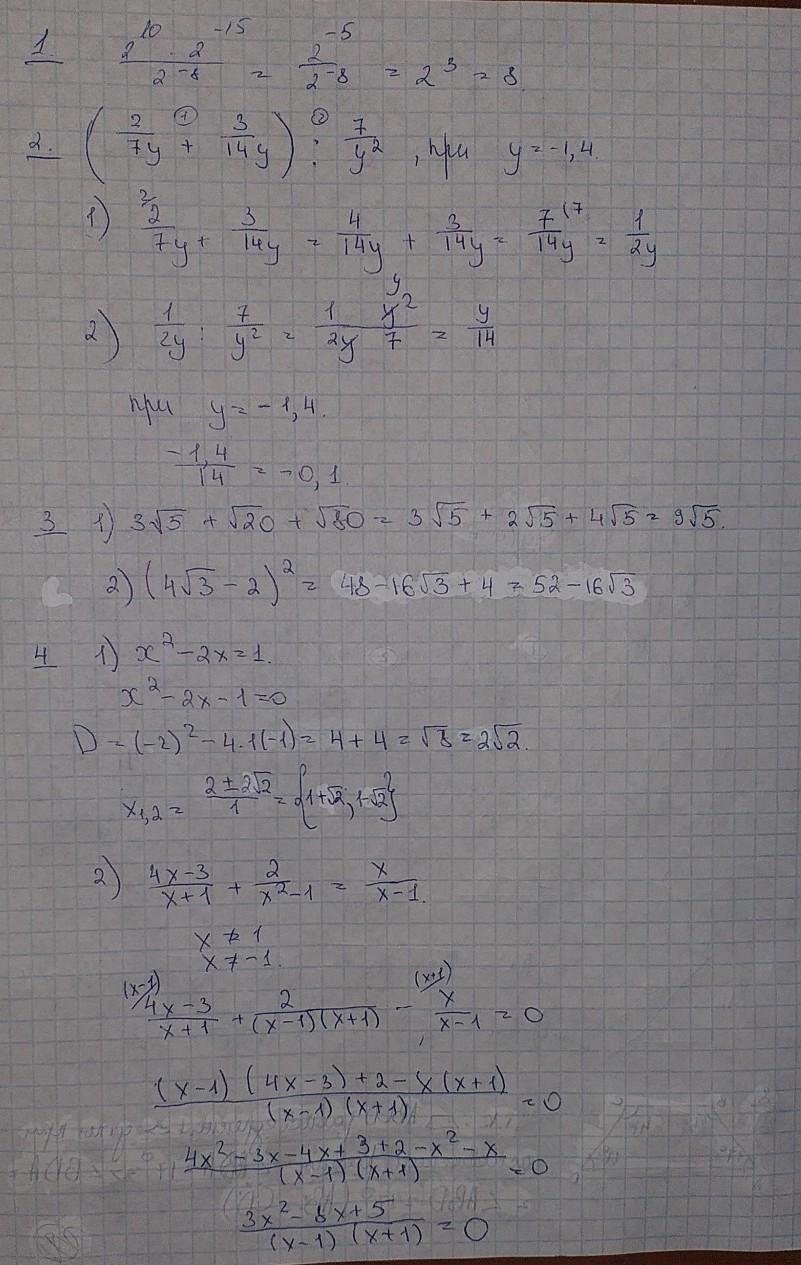 1. (2^10 · 2^-15)/(2^-8) = (2^-5)/(2^-8) = 2^3 = 8
2. (2/(7y) +① 3/(14y)) :② 7/y^2 , при y = -1,4.
1) 2/ 2/(7y) + 3/(14y) = 4/(14y) + 3/(14y) = 7/(14y) (7 = 1/(2y)
2) 1/(2y) : 7/y^2 = (1 y^2)/(2y 7) y = y/14
при y = -1,4.
(-1,4)/14 = -0,1.
3 1) 3√5 + √20 + √80 = 3√5 + 2√5 + 4√5 = 9√5.
2) (4√3 - 2)^2 = 48 - 16√3 + 4 = 52 - 16√3
4 1) x^2 - 2x = 1.
x^2 - 2x - 1 = 0
D = (-2)^2 - 4·1(-1) = 4 + 4 = √8 = 2√2.
x1,2 = (2 ± 2√2)/1 = {1+√2; 1-√2}
2) (4x-3)/(x+1) + 2/(x^2-1) = x/(x-1).
x ≠ 1
x ≠ -1.
(x-1)/ (4x-3)/(x+1) + 2/((x-1)(x+1)) - (x+1)/ x/(x-1) = 0
((x-1)(4x-3)+2-x(x+1))/((x-1)(x+1)) = 0
(4x^2-3x-4x+3+2-x^2-x)/((x-1)(x+1)) = 0
(3x^2-8x+5)/((x-1)(x+1)) = 0